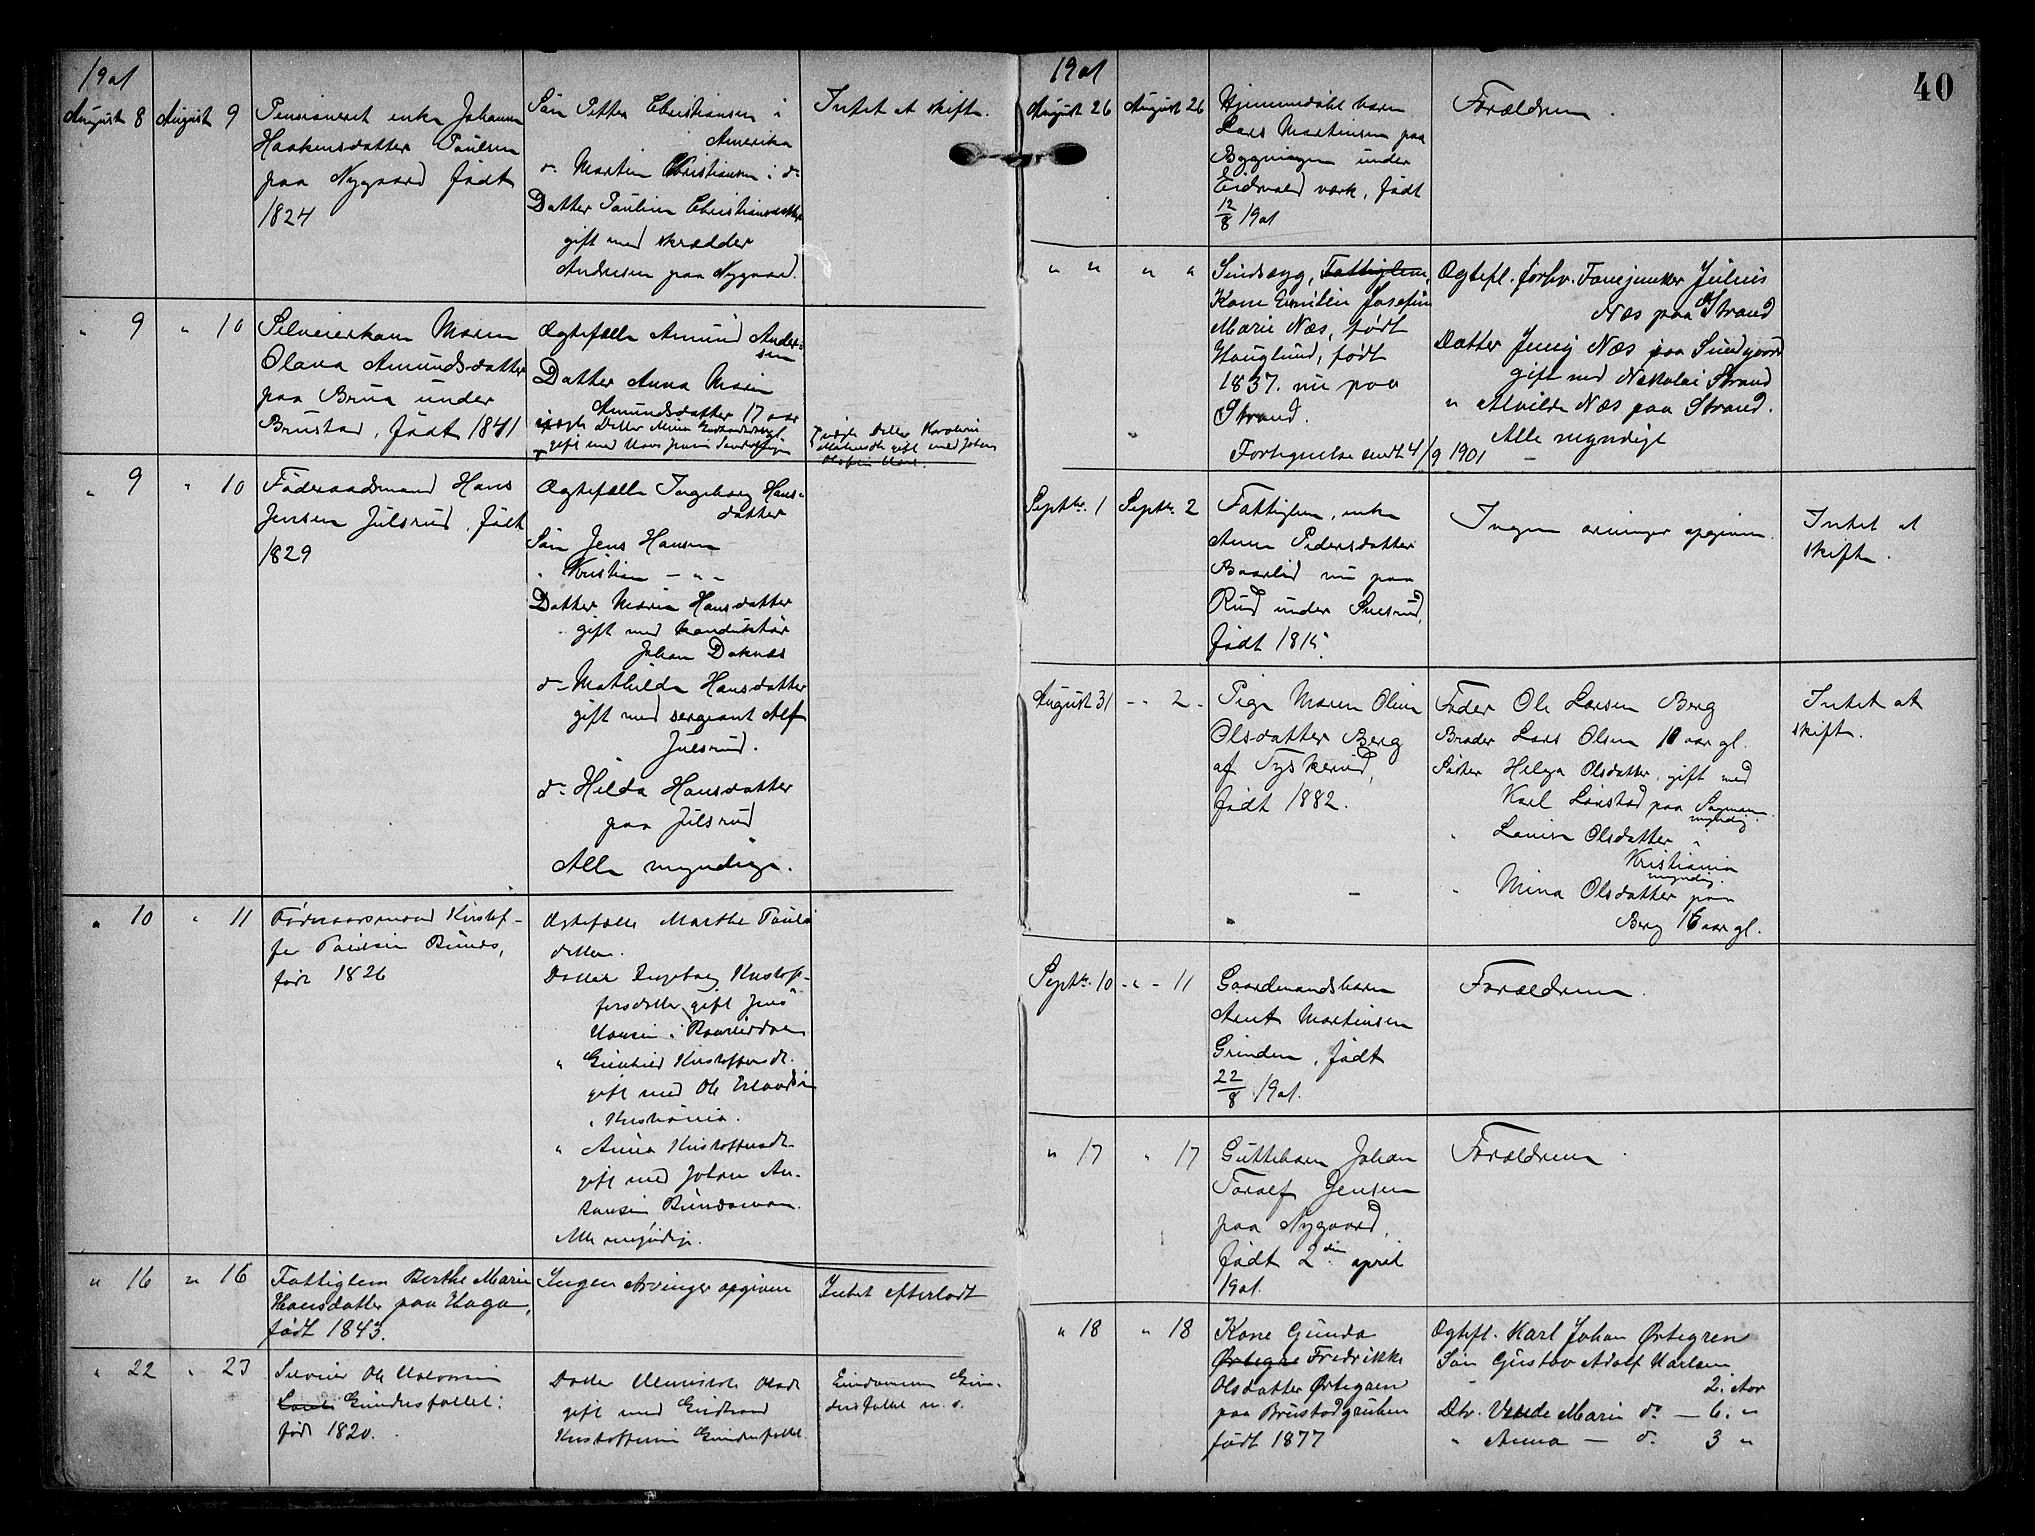 1901
August 8
August 9
Pensioneret enke Johanne
Haakensdatter Paulsen
paa Nygaard født
1824
Søn Petter Christiansen i
Amerika
do Martin Christiansen i do
Datter Pauline Christiansdatter
gift med skrædder
Andresen paa Nygaard.
Intet at skifte.
" 9
" 10
Selveierkone Maren
Olava Amundsdatter
paa Brua under
Brustad, født 1841
Ægtefælle Amund Ander-
sen
Datter Anna Marie
Amundsdatter 17 aar
gift med Hans
gift med Johan
" 9
" 10
Føderaadsmand Hans
Jensen Julsrud, født
1829
Ægtefælle Ingeborg Hans-
datter
Søn Jens Hansen
" Kristian — " -
Datter Maren Hansdatter
gift med konduktør
Johan Doknæs
do Mathilde Hansdatter
gift med sergeant Alf
Julsrud.
do Hilda Hansdatter
paa Julsrud
Alle myndige.
" 10
" 11
Kristof-
fer Paulsen
født 1826
Ægtefælle Marthe Pauls
datter.
Datter Ingeborg Kristof-
fersdatter gift Jens
Hansen i
" Gunhild Kristoffersdt.
gift med Ole Erlandsen
i Kristiania.
" Anna Kristoffersdt.
gift med Johan An-
Alle myndige.
" 16
" 16
Fattiglem Berthe Marie
Hansdatter paa Haga,
født 1843.
Ingen Arvinger opgivne
Intet efterladt
" 22
" 23
Selveier Ole Halvorsen
Gundersfallet
født 1820.
Datter Olsdt
gift med Gudbrand
Kristoffersen Gundersfallet
Eiendommen Gun-
dersfallet m. s.
1901
40
August 26
August 26
Hjemmedøbt barn
Lars Martinsen paa
Bygningen under
Eidsvold værk, født
12/8 1901
Forældrene.
" "
" "
Sindssyg, Fattiglem,
Kone Emilie Josefine
Marie Næs, født
Hauglund, født
1837. nu paa
Strand.
Fortegnelse sendt 4/9 1901
Ægtefl. forhv. Fanejunker Julius
Næs paa Strand
Datter Jenny Næs paa Sundgaard
gift med Nekolai Strand
" Alvilde Næs paa Strand.
Alle myndige
Septbr. 1
Septbr. 2
Fattiglem, enke
Anne Pedersdatter
Baarlid nu paa
Rud under
født 1815.
Ingen arvinger opgivne.
Intet at
skifte.
August 31
- " - 2 -
Pige Maren Oline
Olsdatter Berg
af Tyskerud,
født 1882.
Fader Ole Larsen Berg
Broder Lars Olsen 10 aar gl.
Søster Helga Olsdatter, gift med
Karl Lønstad paa
myndig.
" Lovise Olsdatter
Kristiania
myndig.
" Mina Olsdatter paa
Berg 16 aar gl.
Intet at
skifte.
Septbr. 10
- " - 11
Gaardmandsbarn
Arnt Martinsen
Grinden, født
22/8 1901.
Forældrene.
" 17
" 17
Guttebarn Johan
Toralf Jensen
paa Nygaard,
født 2den april
1901.
Forældrene.
" 18
" 18
Kone Gunda
Ørtegre Fredrikke
Olsdatter Ørtegren
paa Brustadgruben
født 1877
Ægtefl. Karl Johan Ørtegren
Søn Gustav Adolf Karlsen
2. Aar
Dtr. Marie do — 6. "
" Anna — do. 3 "